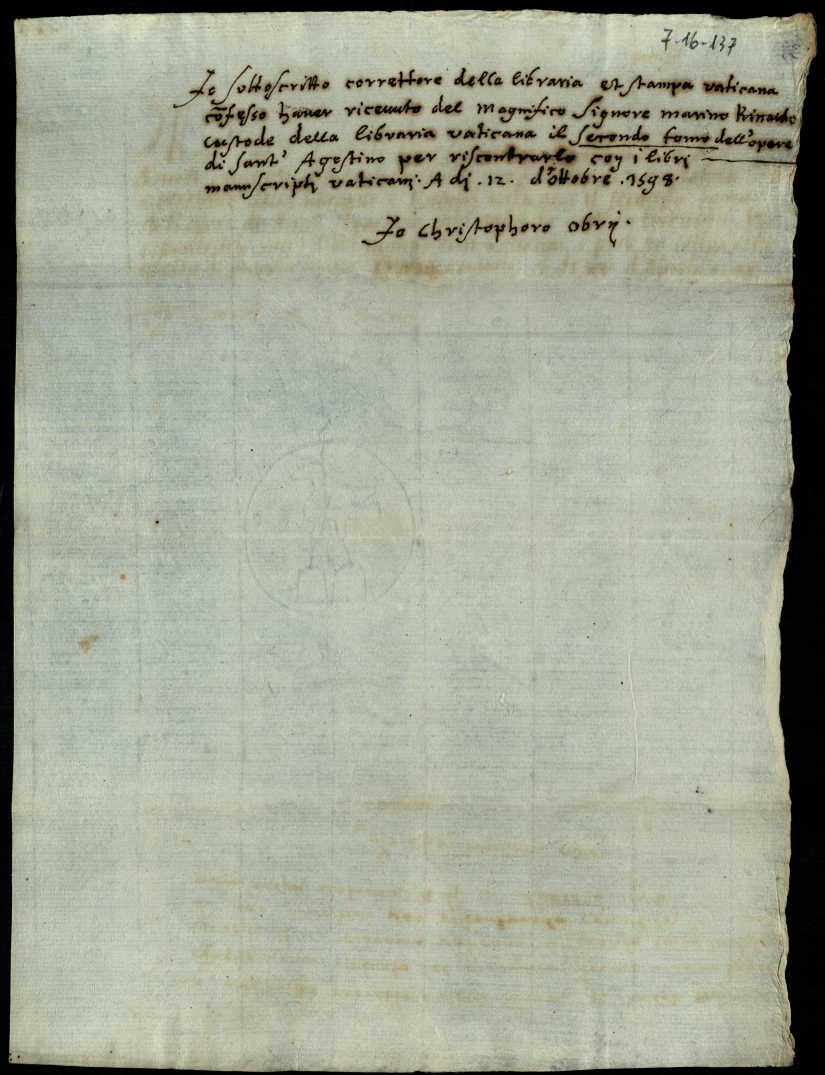 7-16-137
Io sottoscritto correttore della libraria et stampa vaticana
cõfesso haver ricevuto del Magnifico Signore marino Rinaldo
custode della libraria vaticana il secondo tomo dell'opere
di Sant' Agostino per riscontrarlo con i libri
manuscripti vaticani. A di .12. d'ottobre .1598.
Io Christophoro Obrij.